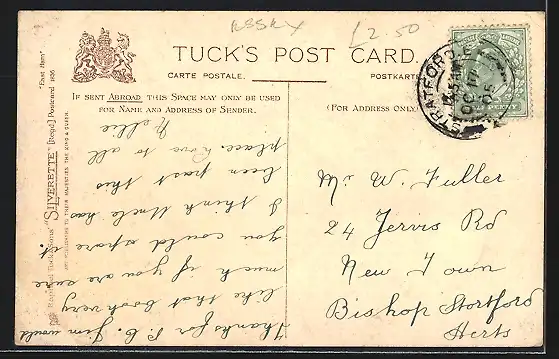 ESSEX
£2.50
TUCK'S POST CARD.
CARTE POSTALE.
POSTKARTE
IF SENT ABROAD THIS SPACE MAY ONLY BE USED
FOR NAME AND ADDRESS OF SENDER.
(FOR ADDRESS ONLY)
"East Ham"
Raphael Tuck & Sons' "SILVERETTE" [Regd.] Postcard 1636
ART PUBLISHERS TO THEIR MAJESTIES THE KING & QUEEN.
STRATFORD
OC
05
PENNY
Thanks for P.C. Jim would
like that book very
much if you are sure
you could spare it
I think Uncle has
been past this
place. Love to all
Nellie
Mr W. Fuller
24 Jervis Rd
New Town
Bishop Stortford
Herts